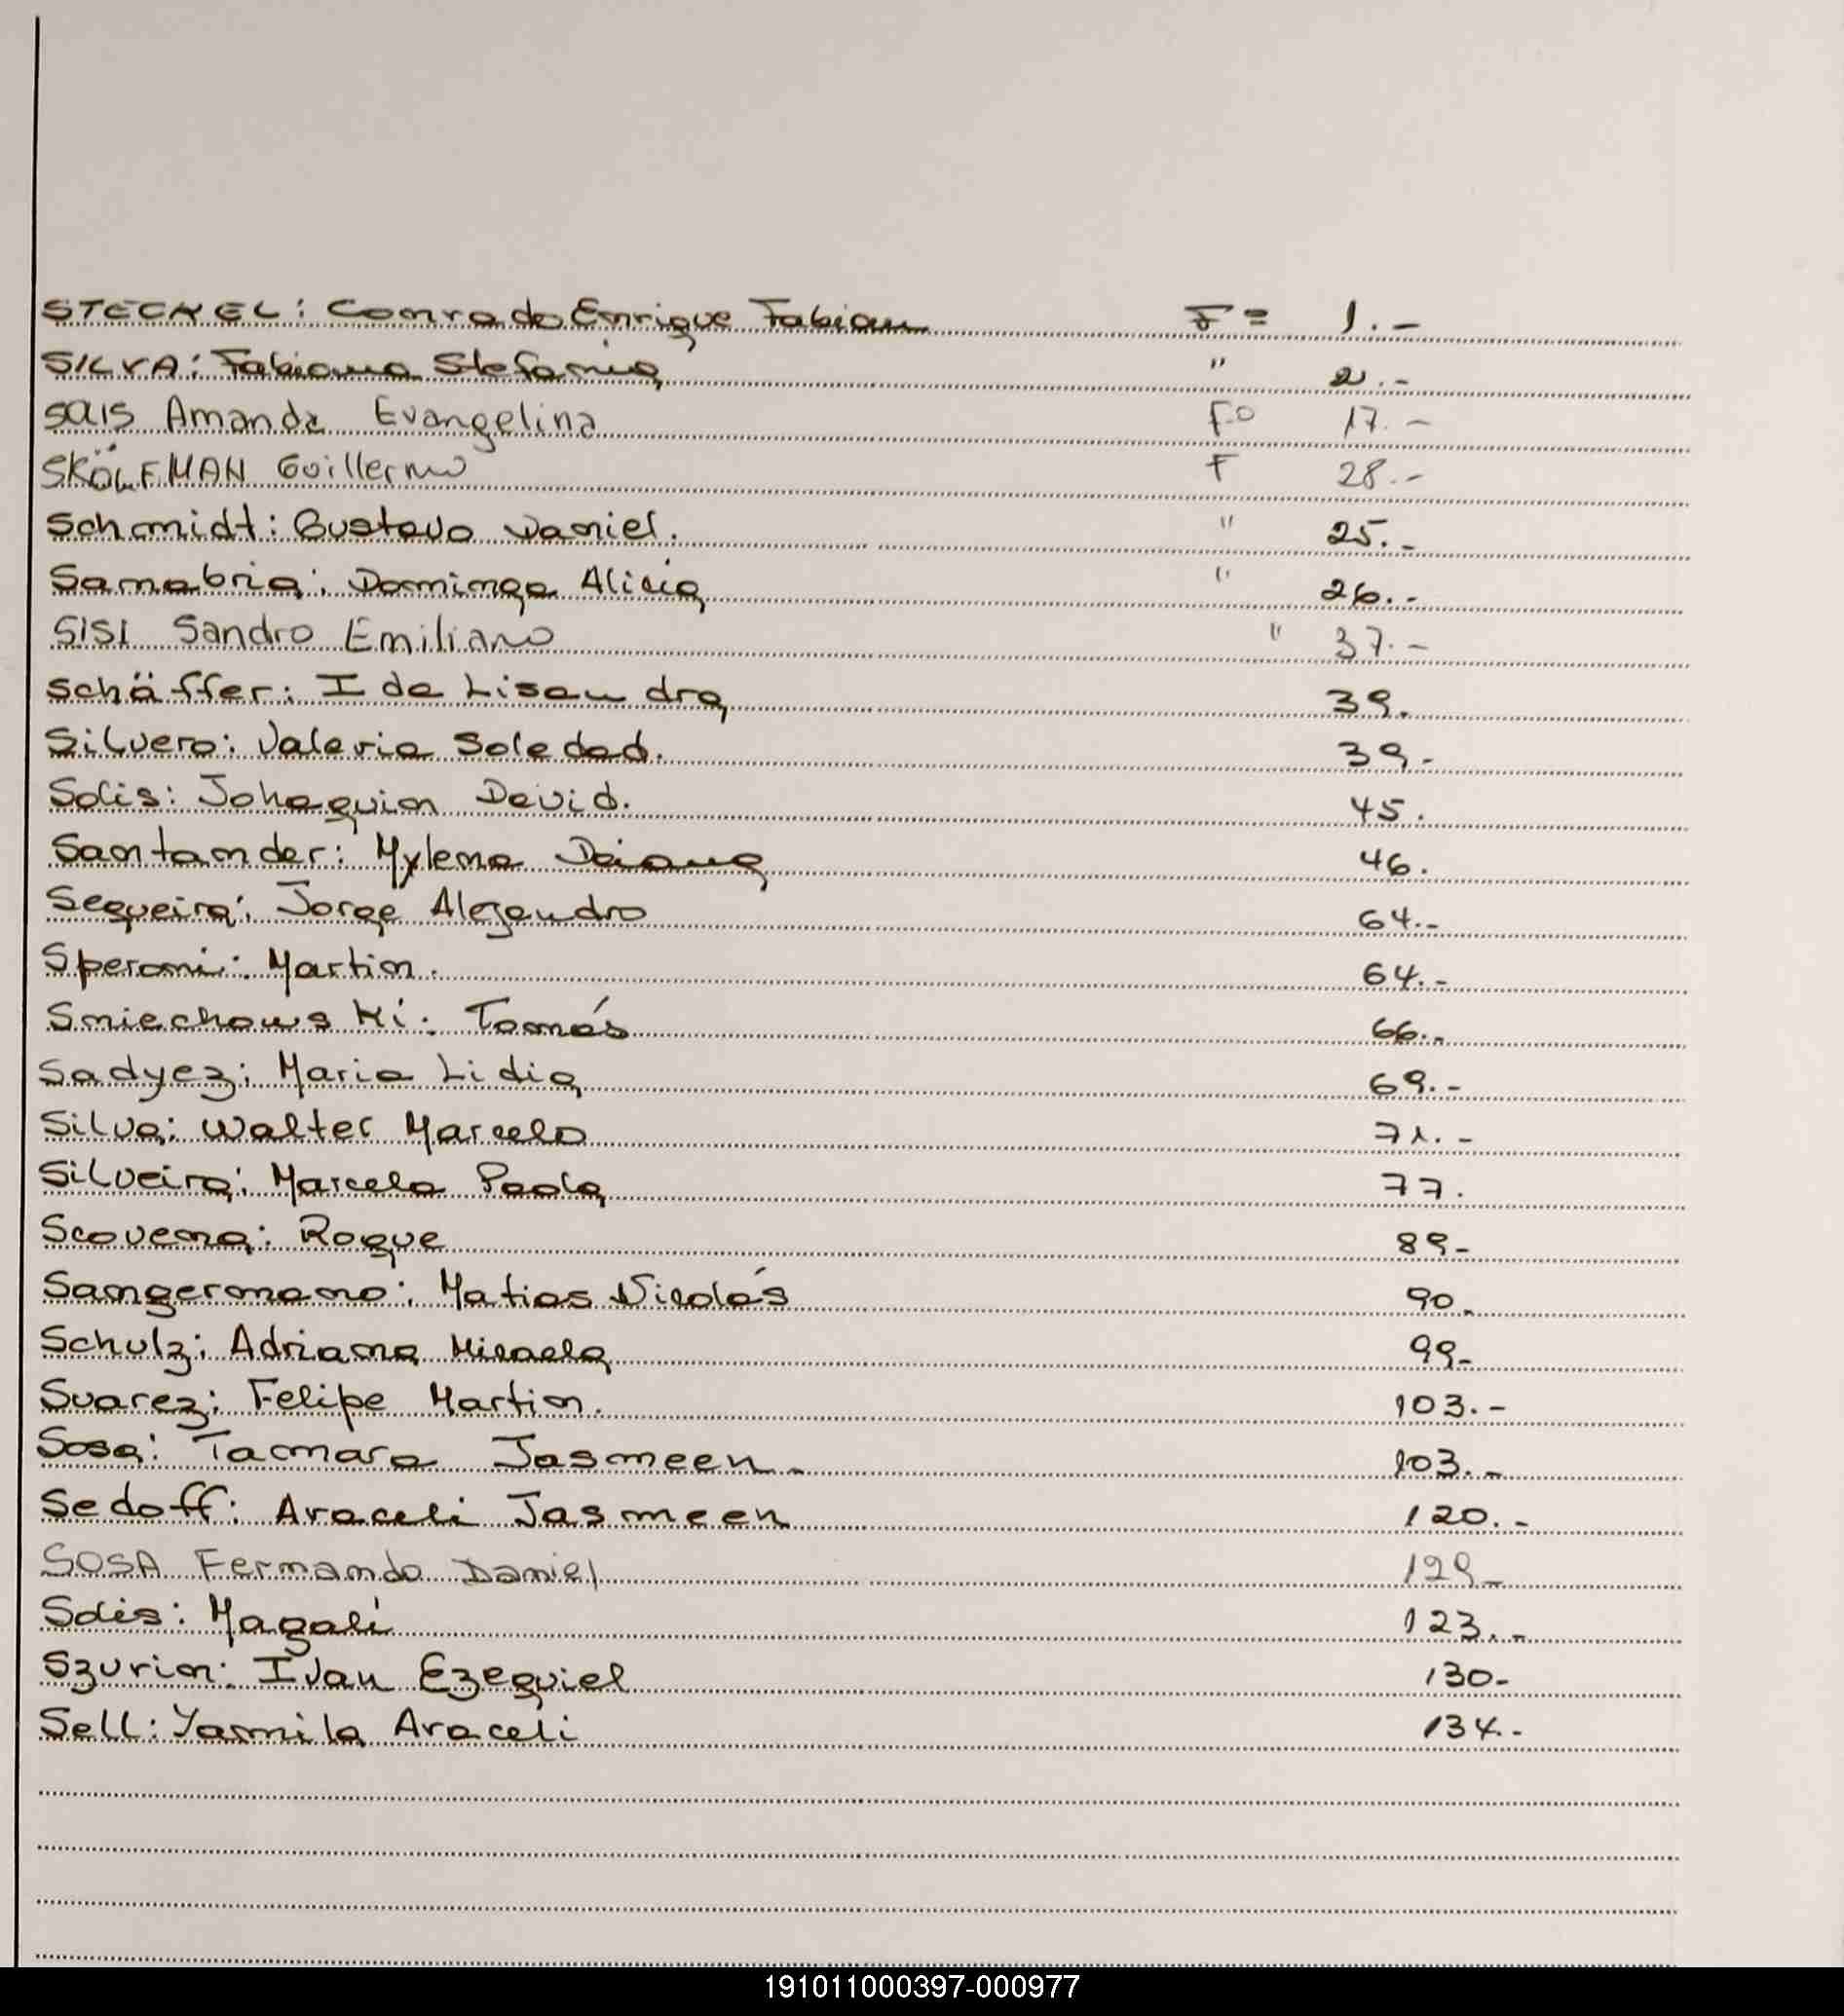 STECKEL: Conrado Enrique Fabian F= 1.-
SILVA: Fabiana Stefania " 2.-
SAIS Amanda Evangelina Fº 17.-
SKÖLFMAN Guillermo F 28.-
Schmidt: Gustavo Daniel. " 25.-
Sanabria: Dominga Alicia " 26.-
SISI Sandro Emiliano " 37.-
Schäffer: Ida Lisandra 39.
Silvero: Valeria Soledad. 39.-
Solis: Johaquin David. 45.
Santander: Mylena Daiana 46.
Sequeira: Jorge Alejandro 64.-
Speroni: Martin. 64.-
Smiechowski: Tomás 66.-
Sadyez: Maria Lidia 69.-
Silva: Walter Marcelo 71.-
Silveira: Marcela Paola 77.
Scovena: Roque 89-
Sangermano: Matias Nicolás 90.
Schulz: Adriana Micaela 99-
Suarez: Felipe Martin. 103.-
Sosa: Tamara Jasmeen.- 103.-
Sedoff: Araceli Jasmeen 120.-
SOSA Fernando Daniel 129-
Solis: Magali 123.-
Szurin: Ivan Ezequiel 130-
Sell: Yamila Araceli 134.-
191011000397-000977